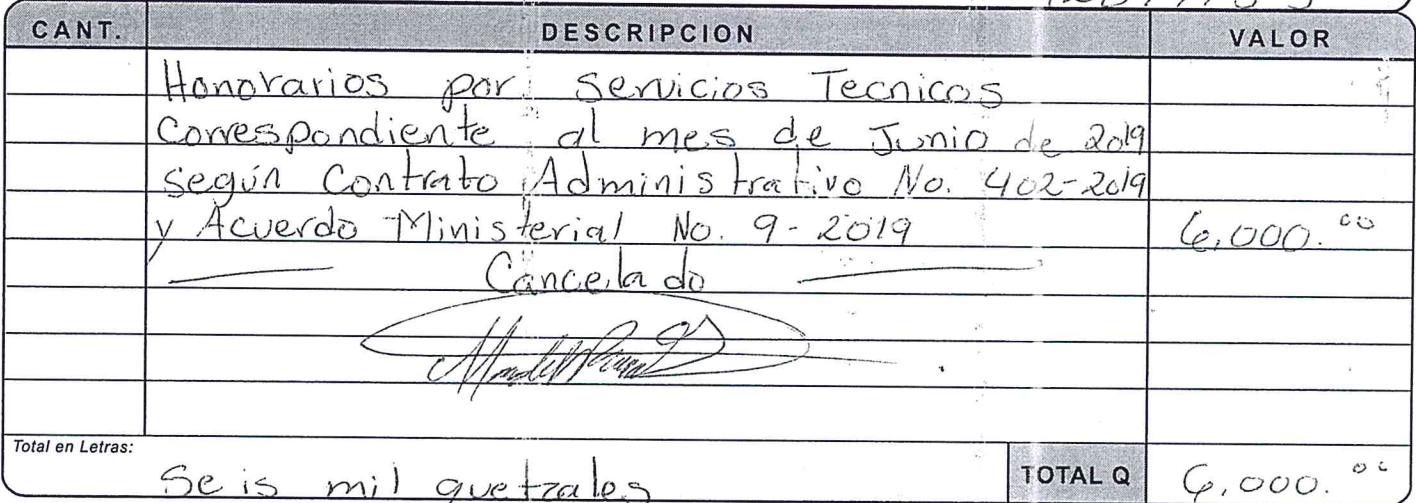 CANT. DESCRIPCION VALOR
Honorarios por Servicios Tecnicos
Correspondiente al mes de Junio de 2019
según Contrato Administrativo No. 402-2019
y Acuerdo Ministerial No. 9-2019 6,000.00
Cancelado
Total en Letras:
Seis mil quetzales TOTAL Q 6,000.00